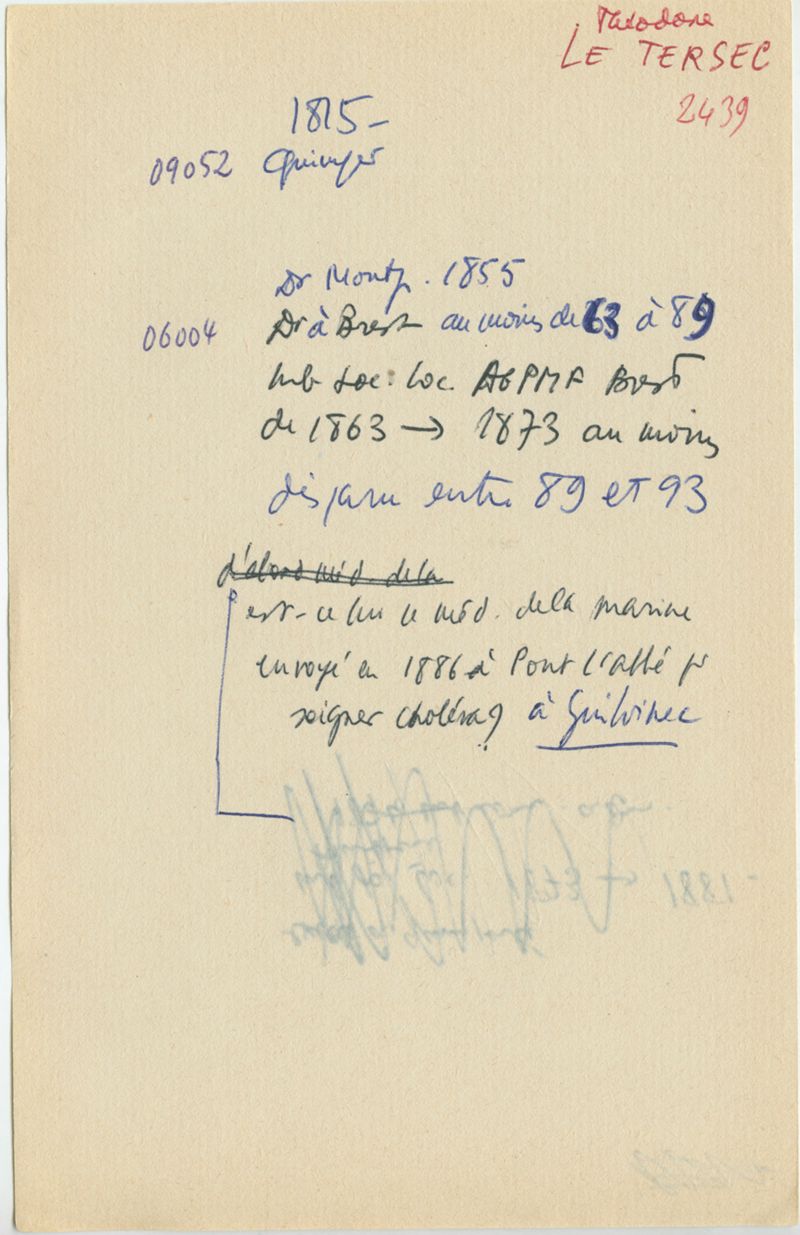 Théodore
LE TERSEC
2439
1815 -
09052 Quimper
Dr Montp. 1855
06004 Dr à Brest au moins de 63 à 89
mb Soc. loc. AGPMF Brest
de 1863 → 1873 au moins
disparu entre 89 et 93
d'abord méd. de la
est-ce lui le méd. de la marine
envoyé en 1886 à Pont l'abbé pr
soigner choléra ? à Guilvinec